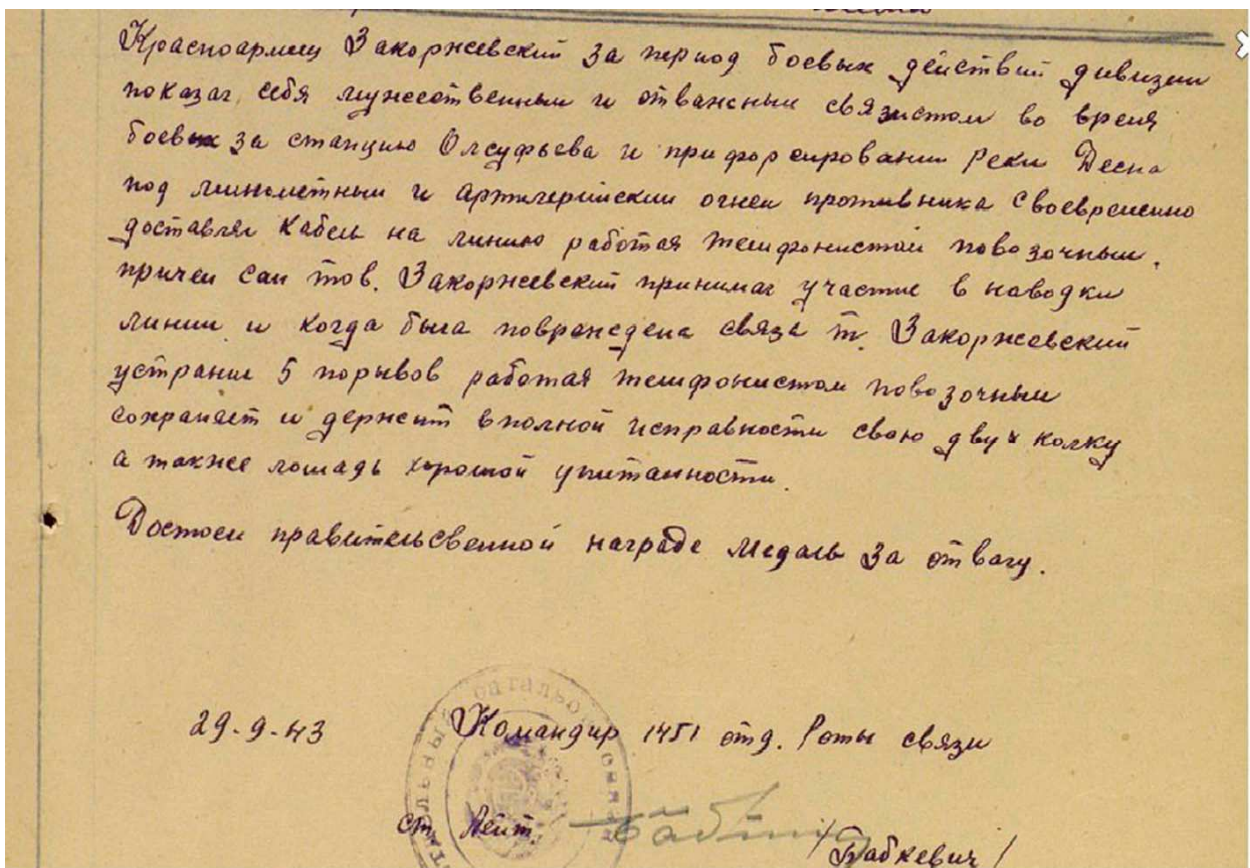 Красноармеец Закоржевский за период боевых действий дивизии
показал себя мужественным и отважным связистом во время
боевых за станцию Олсуфьева и при форсировании реки Десна
под минометным и артилерийским огнем противника своевременно
доставлял кабель на линию работая телефонистом повозочным.
причем сам тов. Закоржевский принимал участие в наводки
линии и когда была повреждена связь т. Закоржевский
устранил 5 порывов работая телефонистом повозочным
сохраняет и держит в полной исправности свою двух колку
а также лошадь хорошой упитанности.
Достоен правительсвенной награде медаль за отвагу.
29-9-43 Командир 1451 отд. Роты связи
ст. Лейт. /Бабкевич/